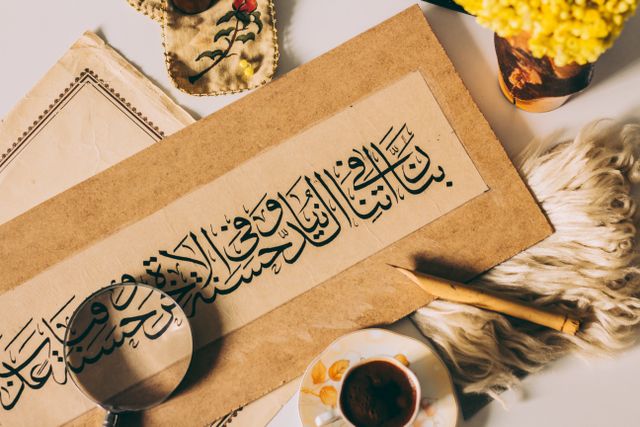 ربنا اتنا فى الدنيا حسنة وفى الاخرة حسنة وقنا عذاب